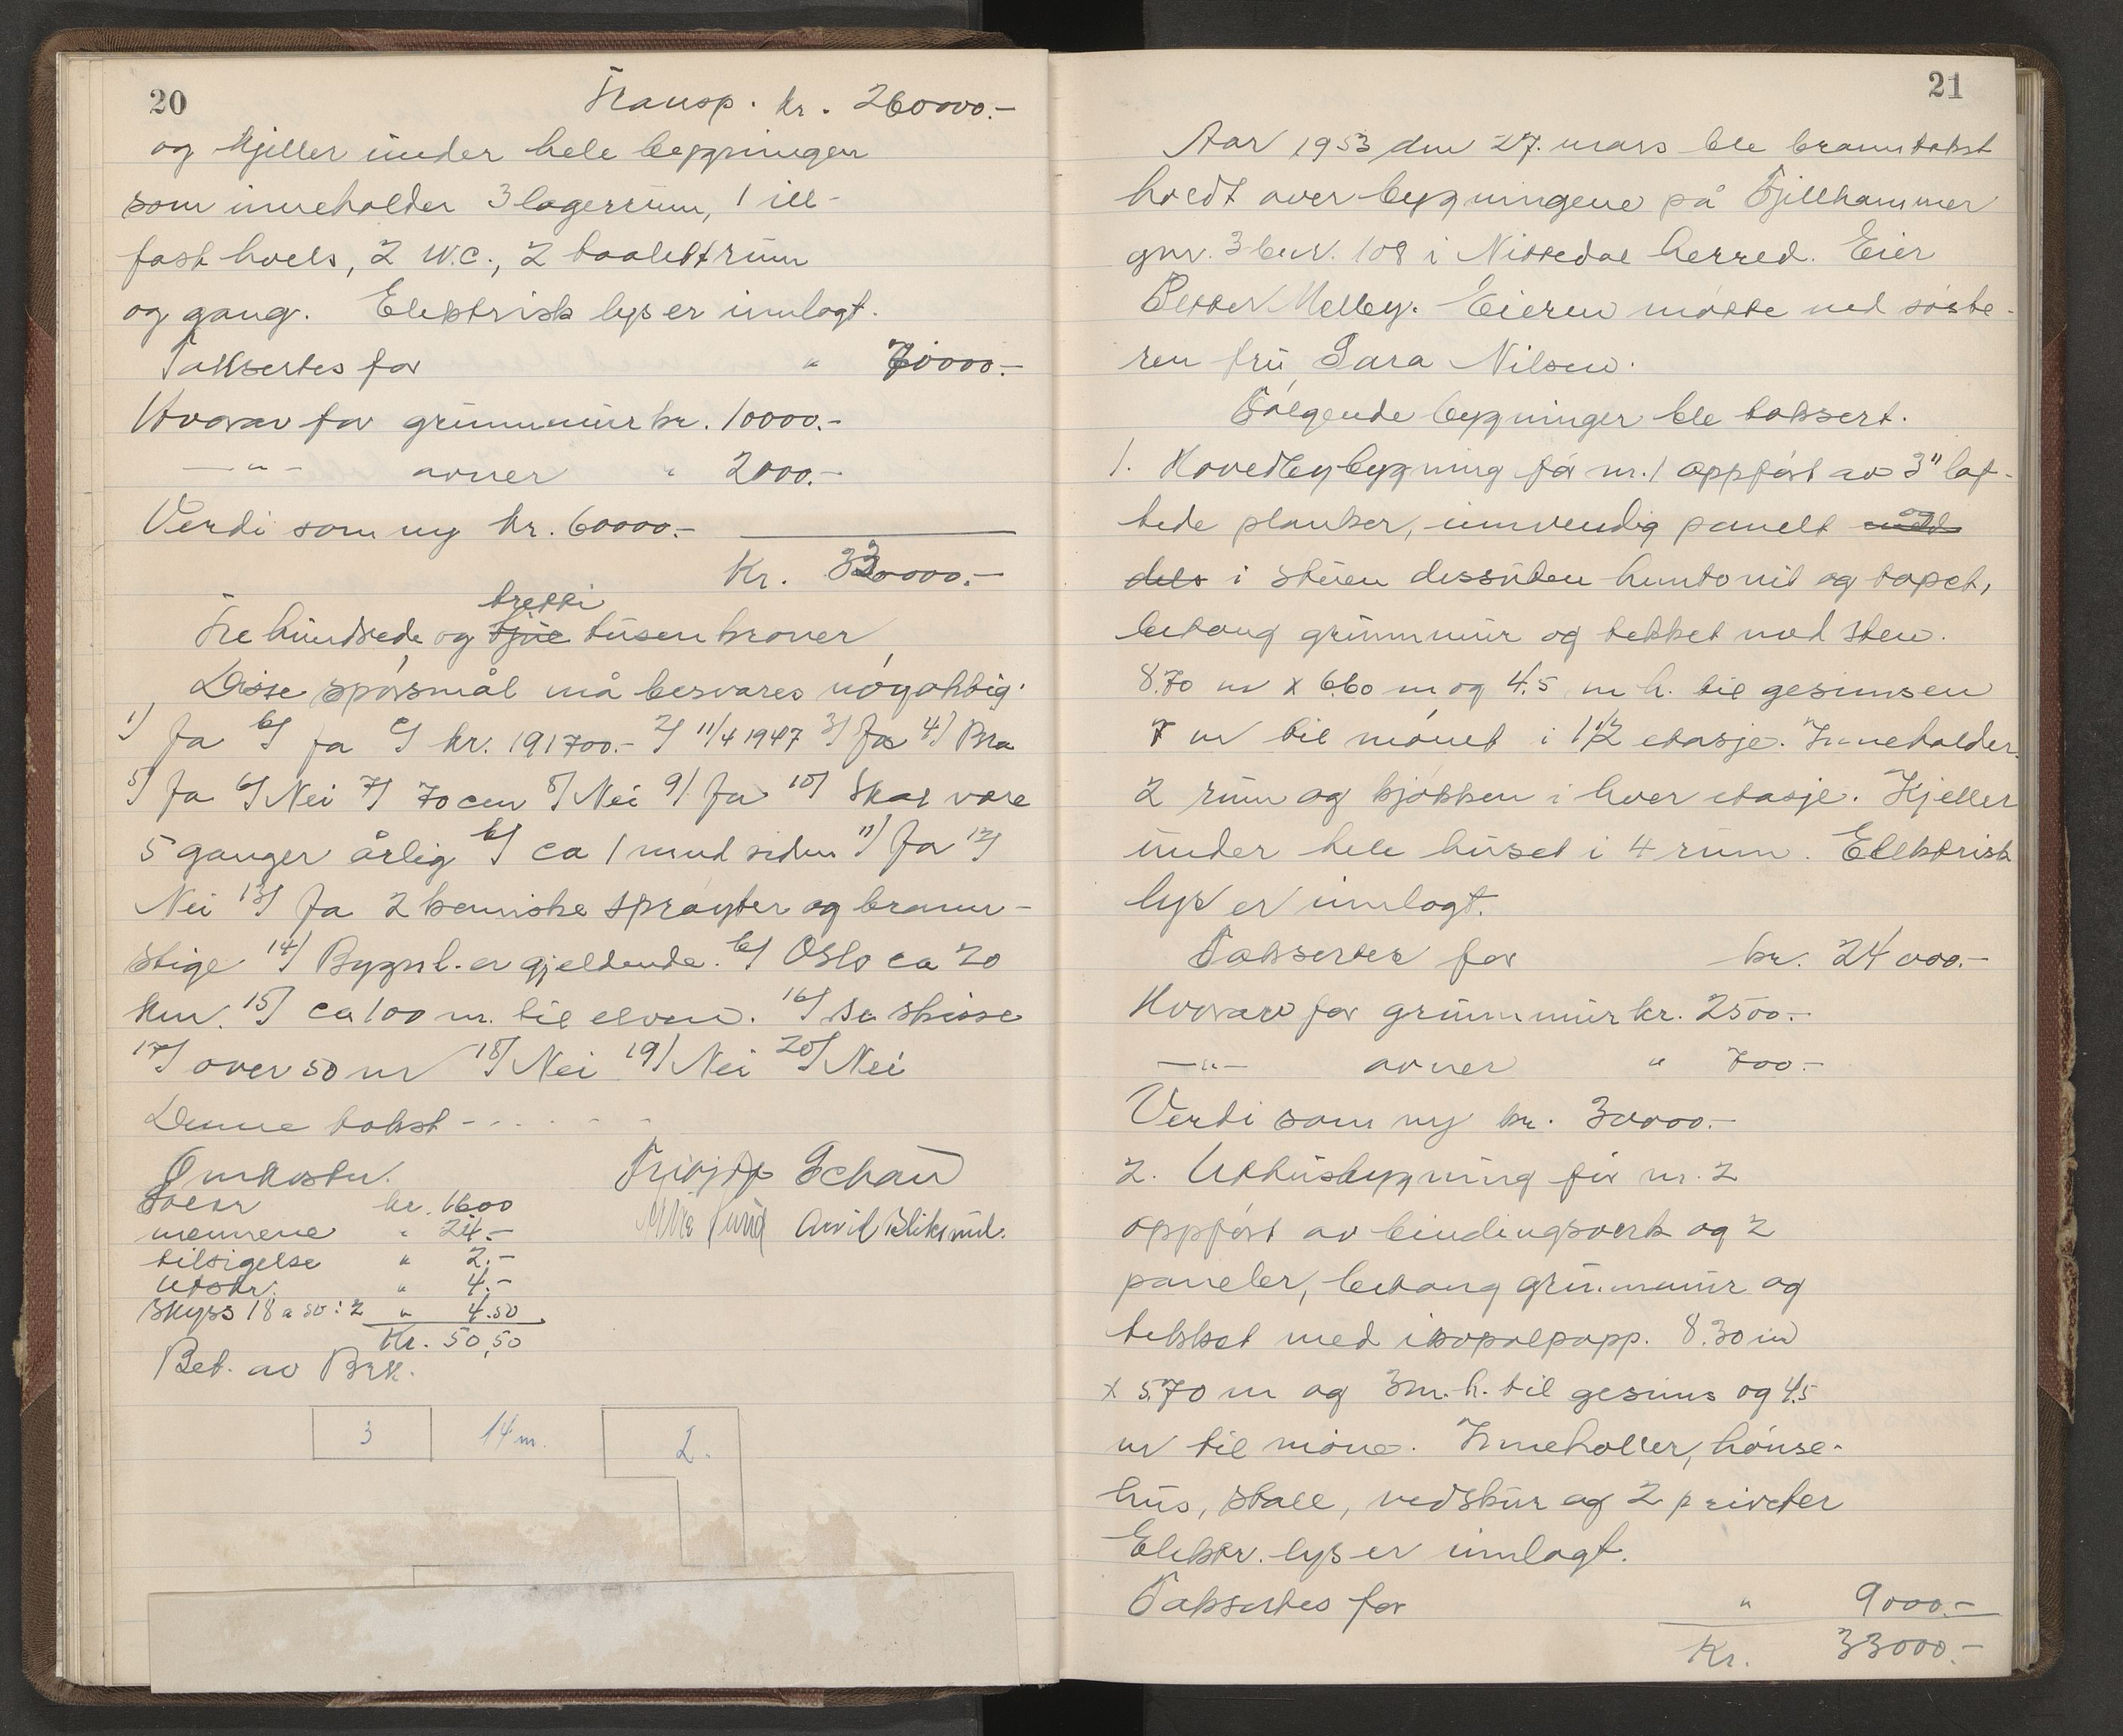 20
Transp. kr. 260000.-
og kjeller under hele bygningen
som inneholder 3 lagerrum, 1 ill-
fast hvelv, 2 W.C., 2 toalettrum
og gang. Elektrisk lys er innlagt.
Takseres for " 70000.-
Hvorav for grunnmur kr. 10000.-
— " — ovner " 2000.-
Verdi som ny kr. 60000.-
Kr. 330000.-
tretti
Tre hundrede og tjue tusen kroner
Disse spørsmål må besvares nøyaktig.
1) Ja b) ja c) kr. 191700.- 2) 11/4 1947 3) Ja 4) Bra
5) Ja 6) Nei 7) 70 cm 8) Nei 9) Ja 10) Skal være
5 ganger årlig b) ca 1 mnd siden 11) Ja 12)
Nei 13) Ja 2 kemiske sprøyter og brann-
stige 14) Bygnl. er gjeldende. b) Oslo ca 20
km. 15) ca 100 m. til elven. 16) Se skisse
17) over 50 m 18) Nei 19) Nei 20) Nei
Denne takst - . . . . . -
Omkostn. Schau
kr. 16.00
mennene " 24.-
tilsigelse " 2.-
Utskr. " 4.-
Skyss 18 a 50 : 2 " 4.50
Kr. 50,50
Bet. av Brk.
3 14 m. 2.
21
Aar 1953 den 27. mars ble branntakst
holdt over bygningene på Fjellhammer
gnr. 3 bnr. 108 i Nittedal herred. Eier
Petter Melby. Eieren møtte ved søste-
ren fru Sara Nilsen.
Følgende bygninger ble taksert.
1. Hovedbygbygning før nr. 1 oppført av 3" laf-
tede planker, innvendig panelt og
dels i stuen dessuten huntonit og tapet,
betong grunnmur og tekket med sten.
8.70 m x 6.60 m og 4.5 m h. til gesimsen
7 m til mønet i 1 1/2 etasje. Inneholder
2 rum og kjøkken i hver etasje. Kjeller
under hele huset i 4 rum. Elektrisk
lys er innlagt.
Takseres for kr. 24000.-
Hvorav for grunnmur kr. 2500.-
— " — ovner " 700.-
Verdi som ny kr. 30000.-
2. Uthusbygning før nr. 2
oppført av bindingsverk og 2
paneler, betong grunnmur og
tekket med isopalpapp. 8.30 m
x 5.70 m og 3 m. h. til gesims og 4.5
m til møne. Inneholder, hønse-
hus, stall, vedskur og 2 priveter
Elektr. lys er innlagt.
Takseres for " 9000.-
Kr. 33000.-